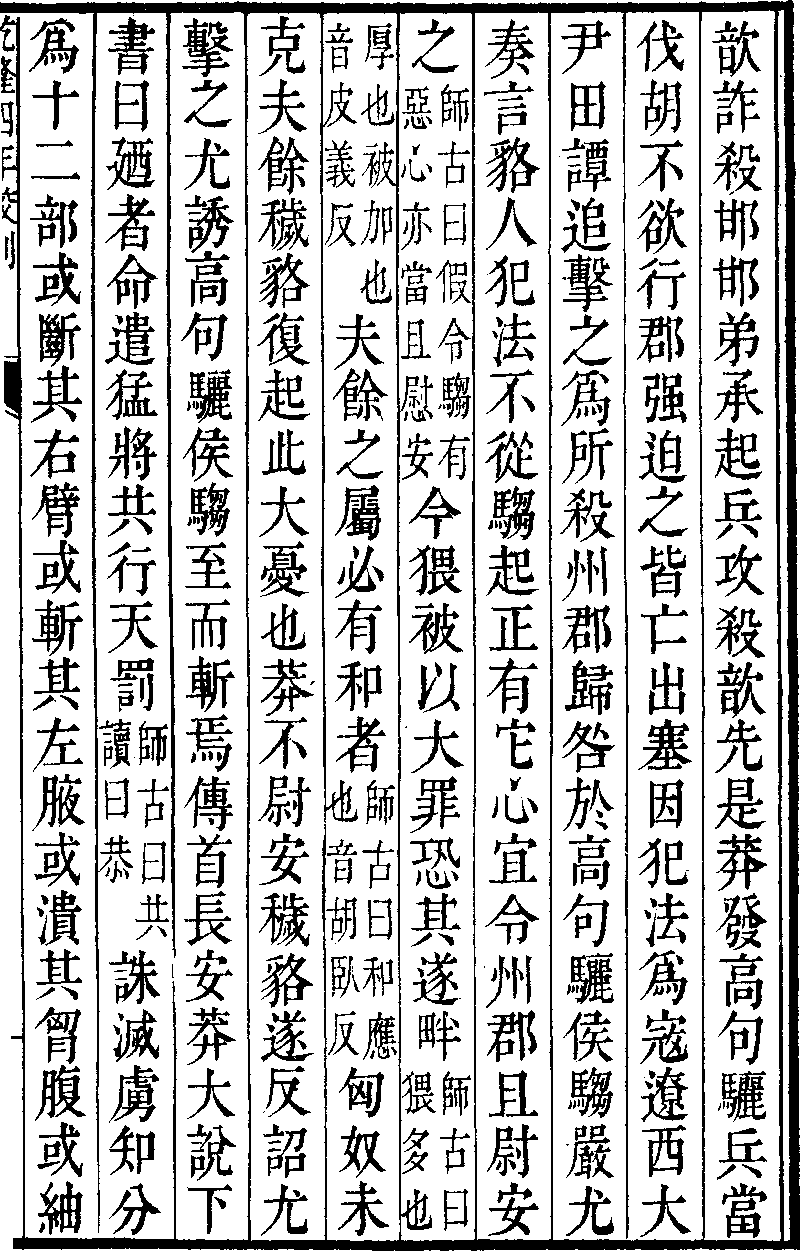 歆詐殺邯邯弟承起兵攻殺歆先是莽發高句驪兵當
伐胡不欲行郡强迫之皆亡出塞因犯法爲寇遼西大
尹田譚追擊之爲所殺州郡歸咎於高句驪侯騶嚴尤
奏言貉人犯法不從騶起正有它心宜令州郡且尉安
之師古曰假令騶有惡心亦當且慰安今猥被以大罪恐其遂畔師古曰猥多也
厚也被加也音皮義反夫餘之屬必有和者師古曰和應也音胡臥反匈奴未
克夫餘穢貉復起此大憂也莽不尉安穢貉遂反詔尤
擊之尤誘高句驪侯騶至而斬焉傳首長安莽大說下
書曰廼者命遣猛將共行天罰師古曰共讀曰恭誅滅虜知分
爲十二部或斷其右臂或斬其左腋或潰其胷腹或紬
乾隆四年校刊